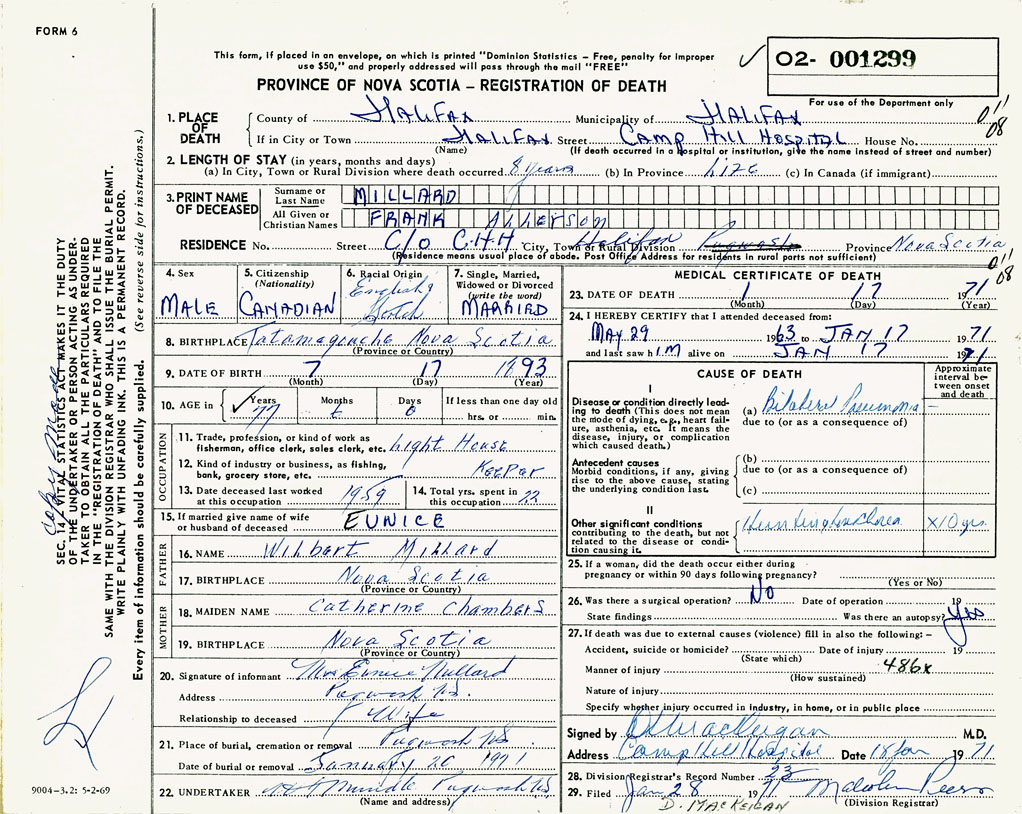 FORM 6
This form, if placed in an envelope, on which is printed "Dominion Statistics – Free, penalty for improper
use $50," and properly addressed will pass through the mail "FREE"
02- 001299
For use of the Department only
PROVINCE OF NOVA SCOTIA – REGISTRATION OF DEATH
1. PLACE OF DEATH
County of HALIFAX Municipality of HALIFAX
011
08
If in City or Town HALIFAX Street CAMP HILL HOSPITAL House No.
(Name) (If death occurred in a hospital or institution, give the name instead of street and number)
2. LENGTH OF STAY (in years, months and days)
(a) In City, Town or Rural Division where death occurred 8 years (b) In Province Life (c) In Canada (if immigrant)
3. PRINT NAME OF DECEASED
Surname or Last Name MILLARD
All Given or Christian Names FRANK
RESIDENCE No. Street C/O C.H.H City, Town or Rural Division Halifax Pugwash Province Nova Scotia
(Residence means usual place of abode. Post Office Address for residents in rural parts not sufficient)
011
08
4. Sex
MALE
5. Citizenship (Nationality)
CANADIAN
6. Racial Origin
English &
Scotch
7. Single, Married, Widowed or Divorced (write the word)
MARRIED
8. BIRTHPLACE Tatamagouche Nova Scotia
(Province or Country)
9. DATE OF BIRTH 7 17 1993
(Month) (Day) (Year)
10. AGE in
Years Months Days If less than one day old
77 0 hrs. or min.
OCCUPATION
11. Trade, profession, or kind of work as
fisherman, office clerk, sales clerk, etc. Light House
12. Kind of industry or business, as fishing,
bank, grocery store, etc. KEEPER
13. Date deceased last worked
at this occupation 1959
14. Total yrs. spent in
this occupation 22
15. If married give name of wife
or husband of deceased EUNICE
FATHER
16. NAME Wilbert Millard
17. BIRTHPLACE Nova Scotia
(Province or Country)
MOTHER
18. MAIDEN NAME Catherine Chambers
19. BIRTHPLACE Nova Scotia
(Province or Country)
20. Signature of informant Mrs Eunice Millard
Address Pugwash N.S.
Relationship to deceased Wife
21. Place of burial, cremation or removal Pugwash N.S.
Date of burial or removal January 20 1971
22. UNDERTAKER Pugwash N.S.
(Name and address)
MEDICAL CERTIFICATE OF DEATH
23. DATE OF DEATH 1 17 1971
(Month) (Day) (Year)
24. I HEREBY CERTIFY that I attended deceased from:
MAY 29 1963 to JAN 17 1971
and last saw him alive on JAN 17 1971
CAUSE OF DEATH
Approximate interval between onset and death
I
Disease or condition directly leading to death (This does not
the mode of dying, e.g., heart failure, asthenia, etc. It means the
disease, injury, or complication
which caused death.)
(a) Bilateral Pneumonia –
due to (or as a consequence of)
Antecedent causes
Morbid conditions, if any, giving
rise to the above cause, stating
the underlying condition last.
(b)
due to (or as a consequence of)
(c)
II
Other significant conditions
contributing to the death, but not
related to the disease or condition causing it.
Huntington's Chorea x10 yrs.
25. If a woman, did the death occur either during
pregnancy or within 90 days following pregnancy?
(Yes or No)
26. Was there a surgical operation? No Date of operation 19
State findings Was there an autopsy? Yes
27. If death was due to external causes (violence) fill in also the following: –
Accident, suicide or homicide? Date of injury 19
(State which)
Manner of injury 486x
(How sustained)
Nature of injury
Specify whether injury occurred in industry, in home, or in public place
Signed by D MacKeigan M.D.
Address Camp Hill Hospital Date 18 Jan 1971
28. Division Registrar's Record Number 33
29. Filed Jan 28 1971 Malcolm
(Division Registrar)
D. MACKEIGAN
SEC. 14, VITAL STATISTICS ACT MAKES IT THE DUTY
OF THE UNDERTAKER OR PERSON ACTING AS UNDERTAKER
TO OBTAIN ALL THE PARTICULARS REQUIRED
IN THE "REGISTRATION OF DEATH" AND TO FILE THE
SAME WITH THE DIVISION REGISTRAR WHO SHALL ISSUE THE BURIAL PERMIT.
WRITE PLAINLY WITH UNFADING INK. THIS IS A PERMANENT RECORD.
Every item of information should be carefully supplied. (See reverse side for instructions.)
9004-3.2: 5-2-69